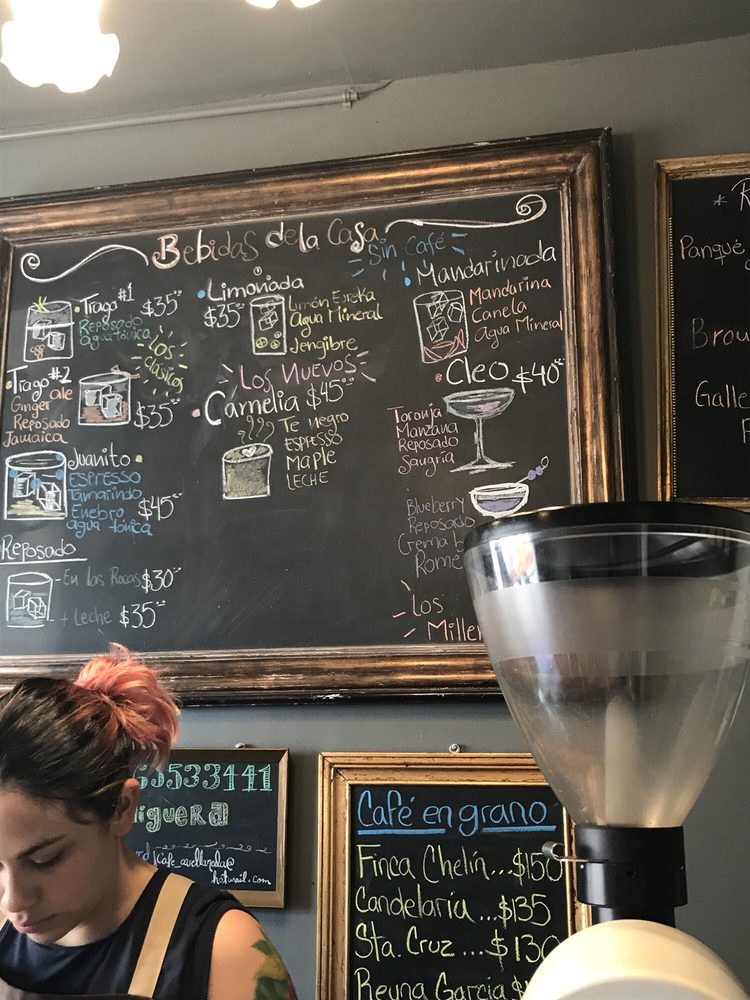 Bebidas de la Casa
Trago #1 $35
Reposado
agua tónica
Los
clásicos
Trago #2
Ginger ale
Reposado
Jamaica
$35
Juanito
Espresso
Tamarindo
Enebro
agua tónica
$45
Reposado
- En las Rocas $30
+ Leche $35
Limonada
$35
Limón Eureka
Agua Mineral
Jengibre
Los Nuevos
Camelia $45
Te negro
Espresso
Maple
Leche
Sin Café
Mandarinada
Mandarina
Canela
Agua Mineral
Cleo $40
Toronja
Manzana
Reposado
Sangría
Blueberry
Reposado
Crema
Rome
Los
Millen
* R
Panqué
Brow
Galle
65533441
iguera
cafe_avellaneda@
hotmail.com
Café en grano
Finca Chelín...$150
Candelaria...$135
Sta. Cruz ...$130
Reyna García $